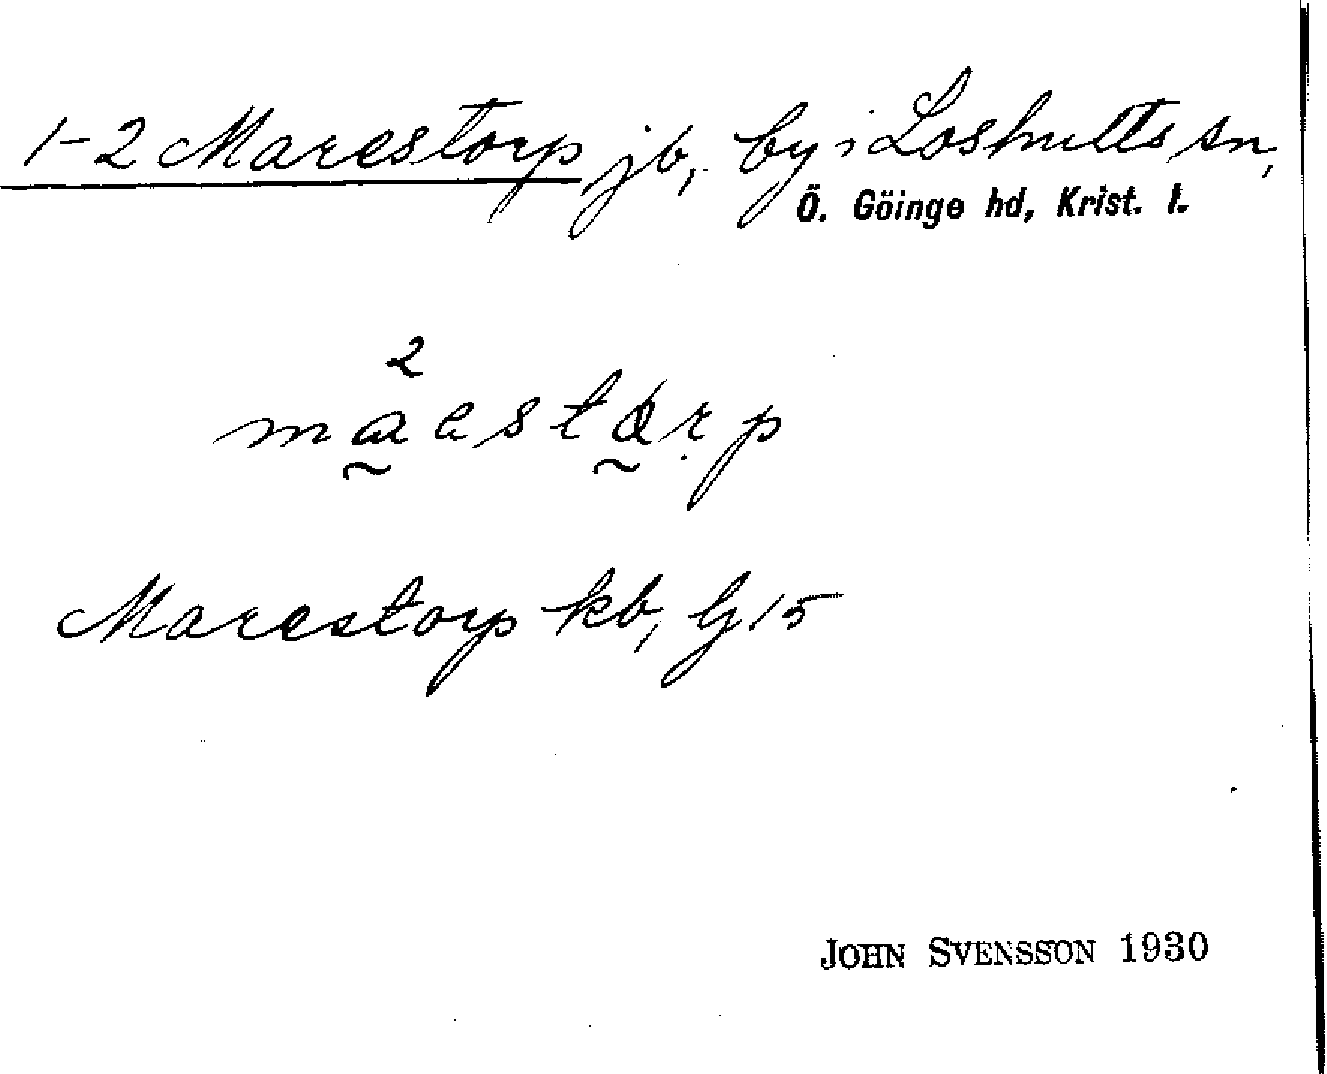 1-2 Marestorp jb, by i Loshults sn,
Ö. Göinge hd, Krist. l.
2
Marestorp kb, G 15
JOHN SVENSSON 1930